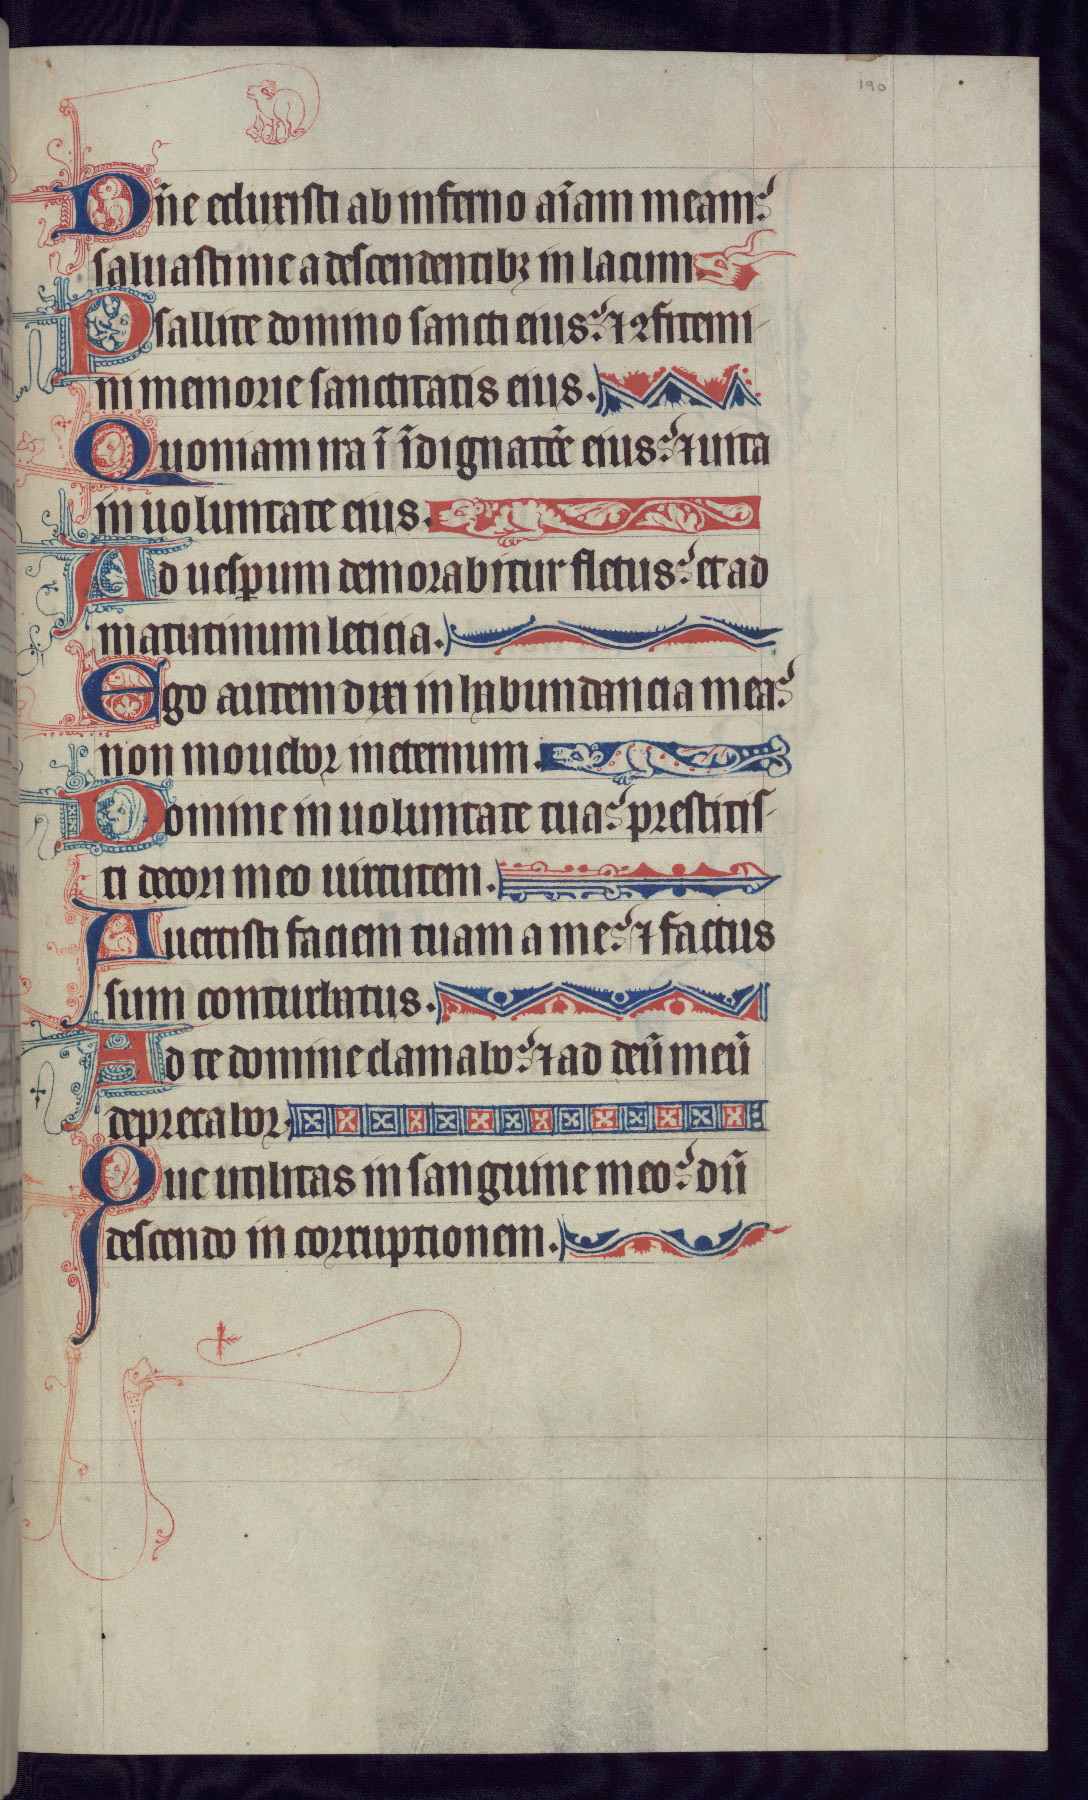 190
Dn̄e eduxisti ab inferno aı̄am meam:
saluasti me a descendentibꝫ in lacum.
Psallite domino sancti eius: ⁊ ꝯfitemi-
ni memorie sanctitatis eius.
Quoniam ira ī īdignatōe eius: ⁊ uita
in uoluntate eius.
Ad uesꝑum demorabitur fletus: et ad
matutinum leticia.
Ego autem dixi in habundancia mea:
non mouebor in eternum.
Domine in uoluntate tua: prestitis-
ti decori meo uirtutem.
Auertisti faciem tuam a me: ⁊ factus
sum conturbatus.
Ad te domine clamabo: ⁊ ad deū meū
deprecabor.
Que utilitas in sanguine meo: dū
descendo in corruptionem.